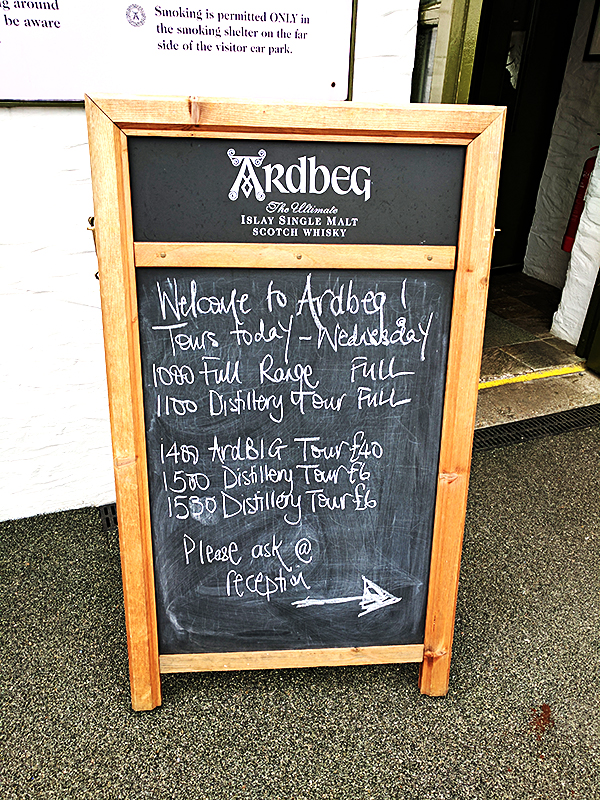 ng around
be aware
Smoking is permitted ONLY in
the smoking shelter on the far
side of the visitor car park.
ARDBEG
The Ultimate
ISLAY SINGLE MALT
SCOTCH WHISKY
Welcome to Ardbeg!
Tours today - Wednesday
1000 Full Range FULL
1100 Distillery Tour FULL
1400 ArdBIG Tour £40
1500 Distillery Tour £6
1530 Distillery Tour £6
Please ask @
reception